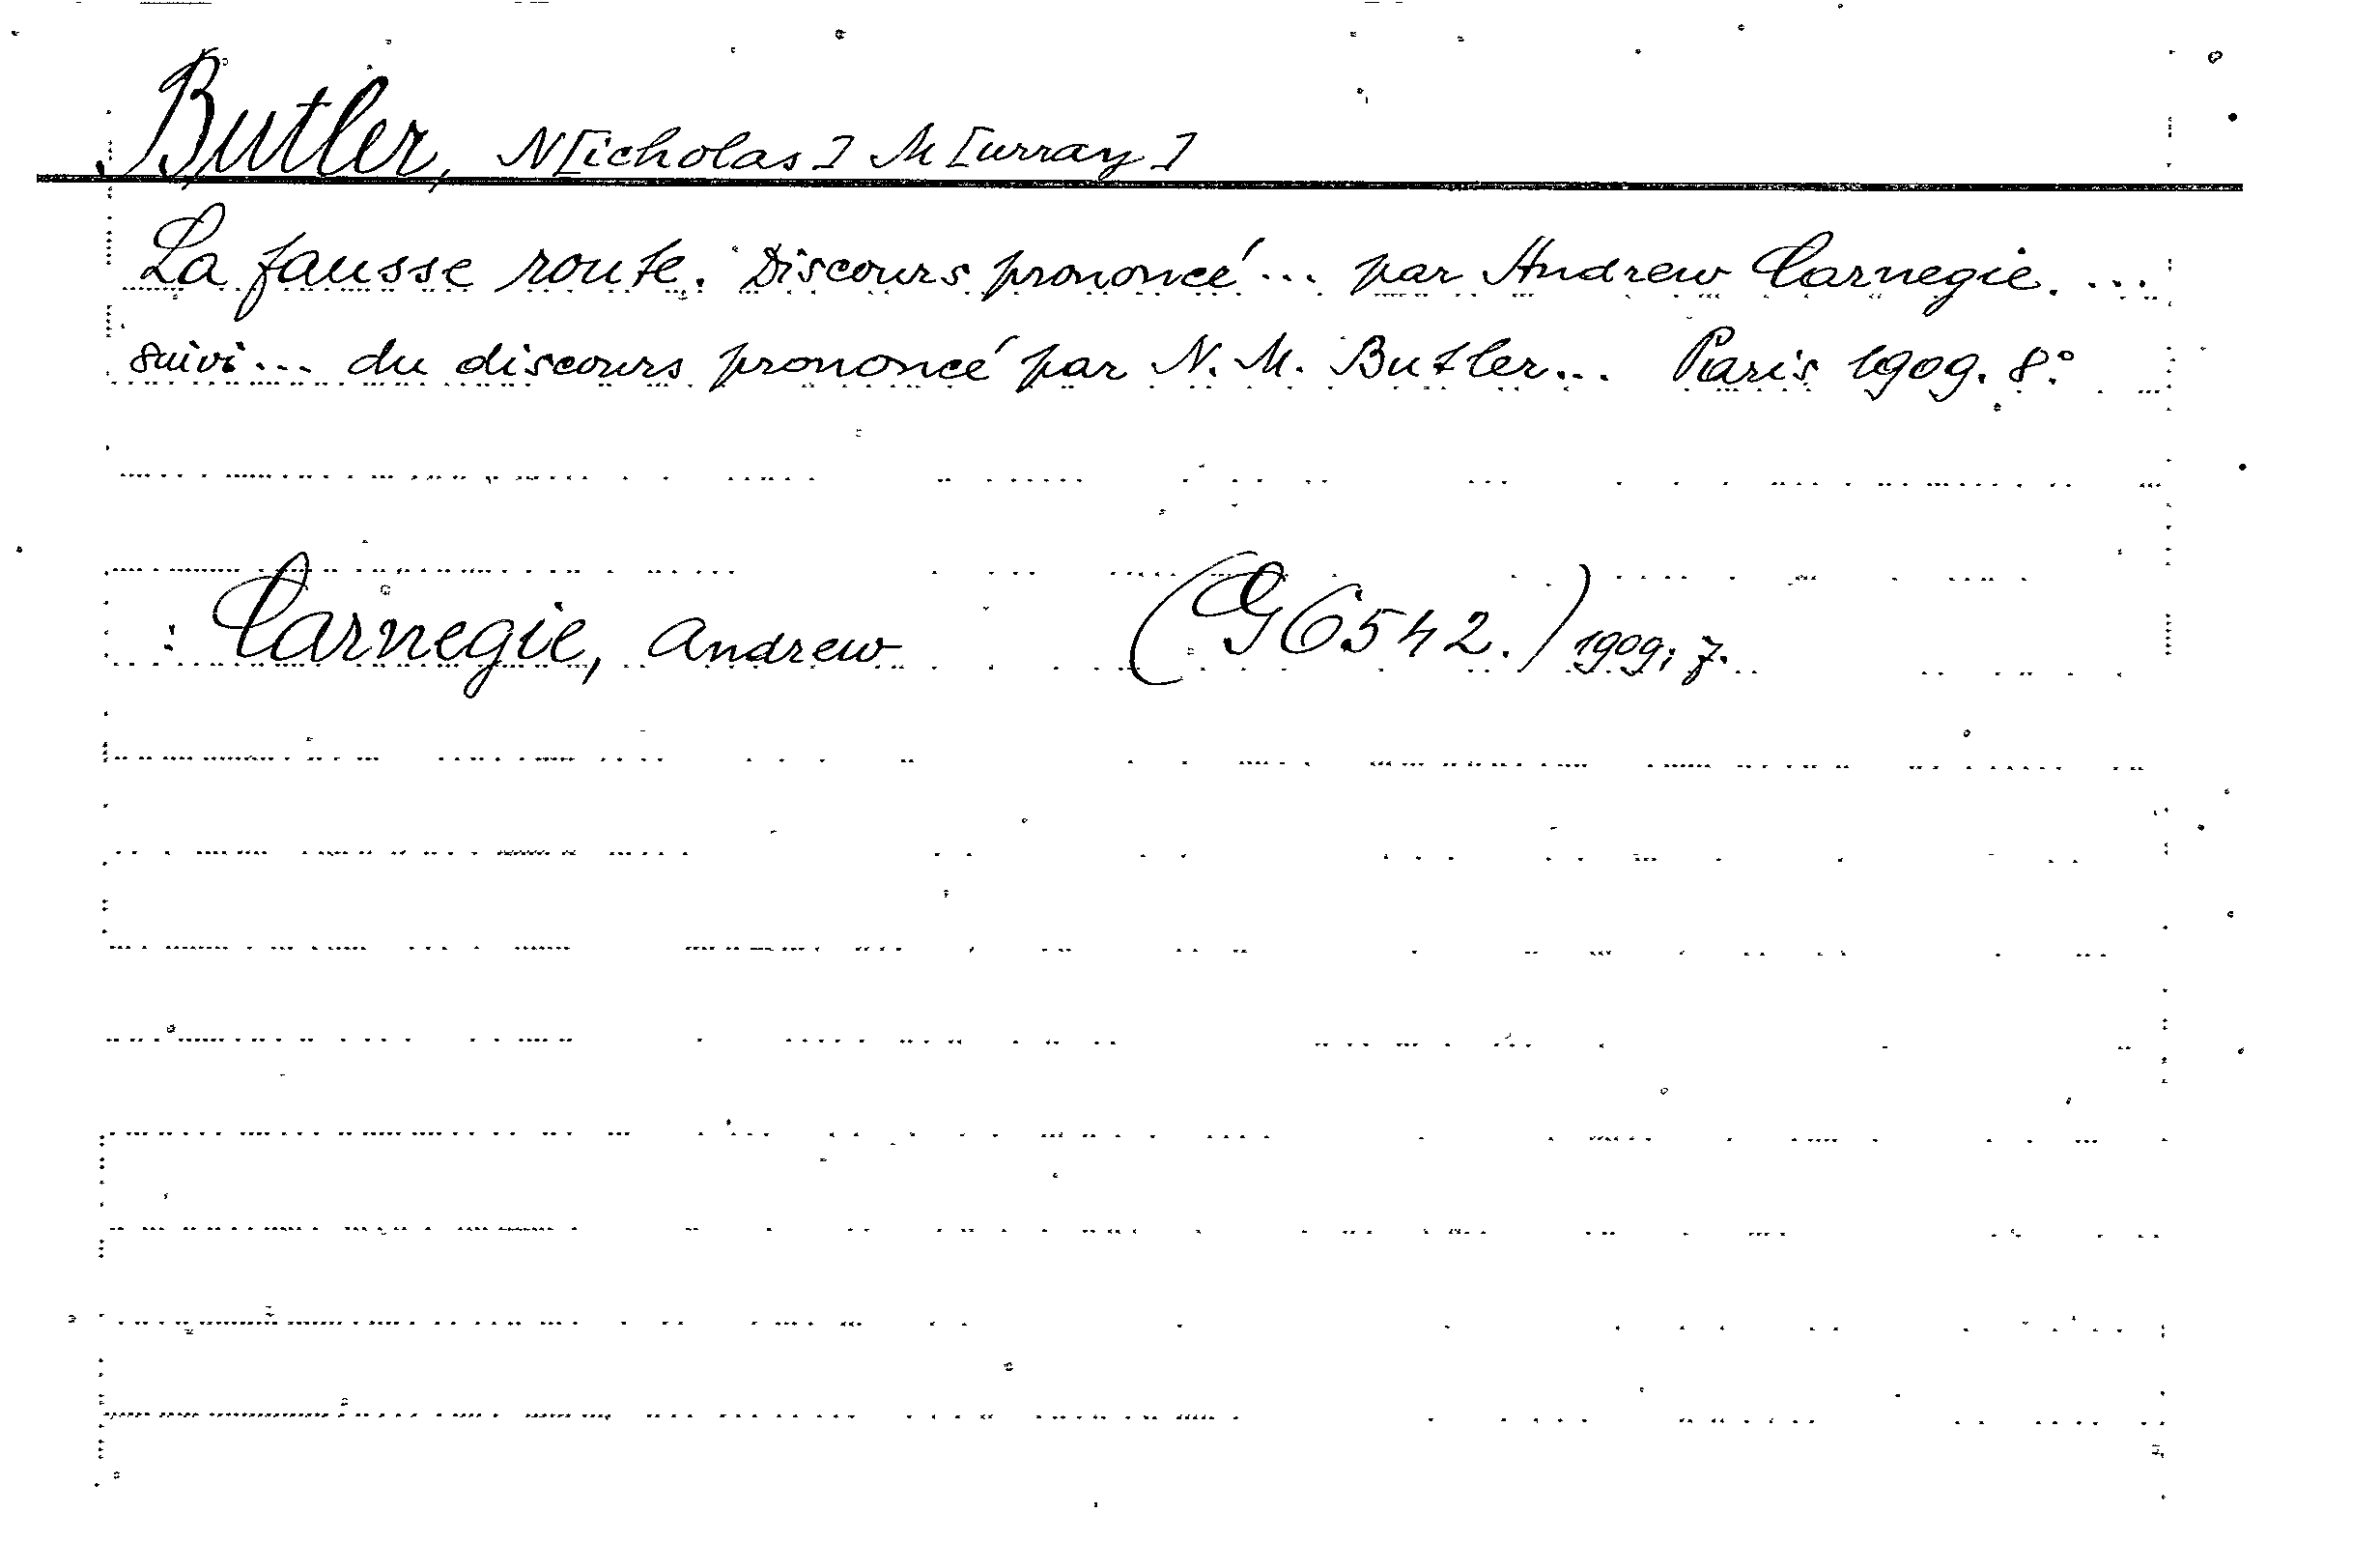 Butler, N[icholas] M[urray]
La fausse route. Discours prononcé... par Andrew Carnegie. ...
suivi... du discours prononcé par N. M. Butler... Paris 1909. 8°.
: Carnegie, Andrew (G 6542.) 1909; 7.